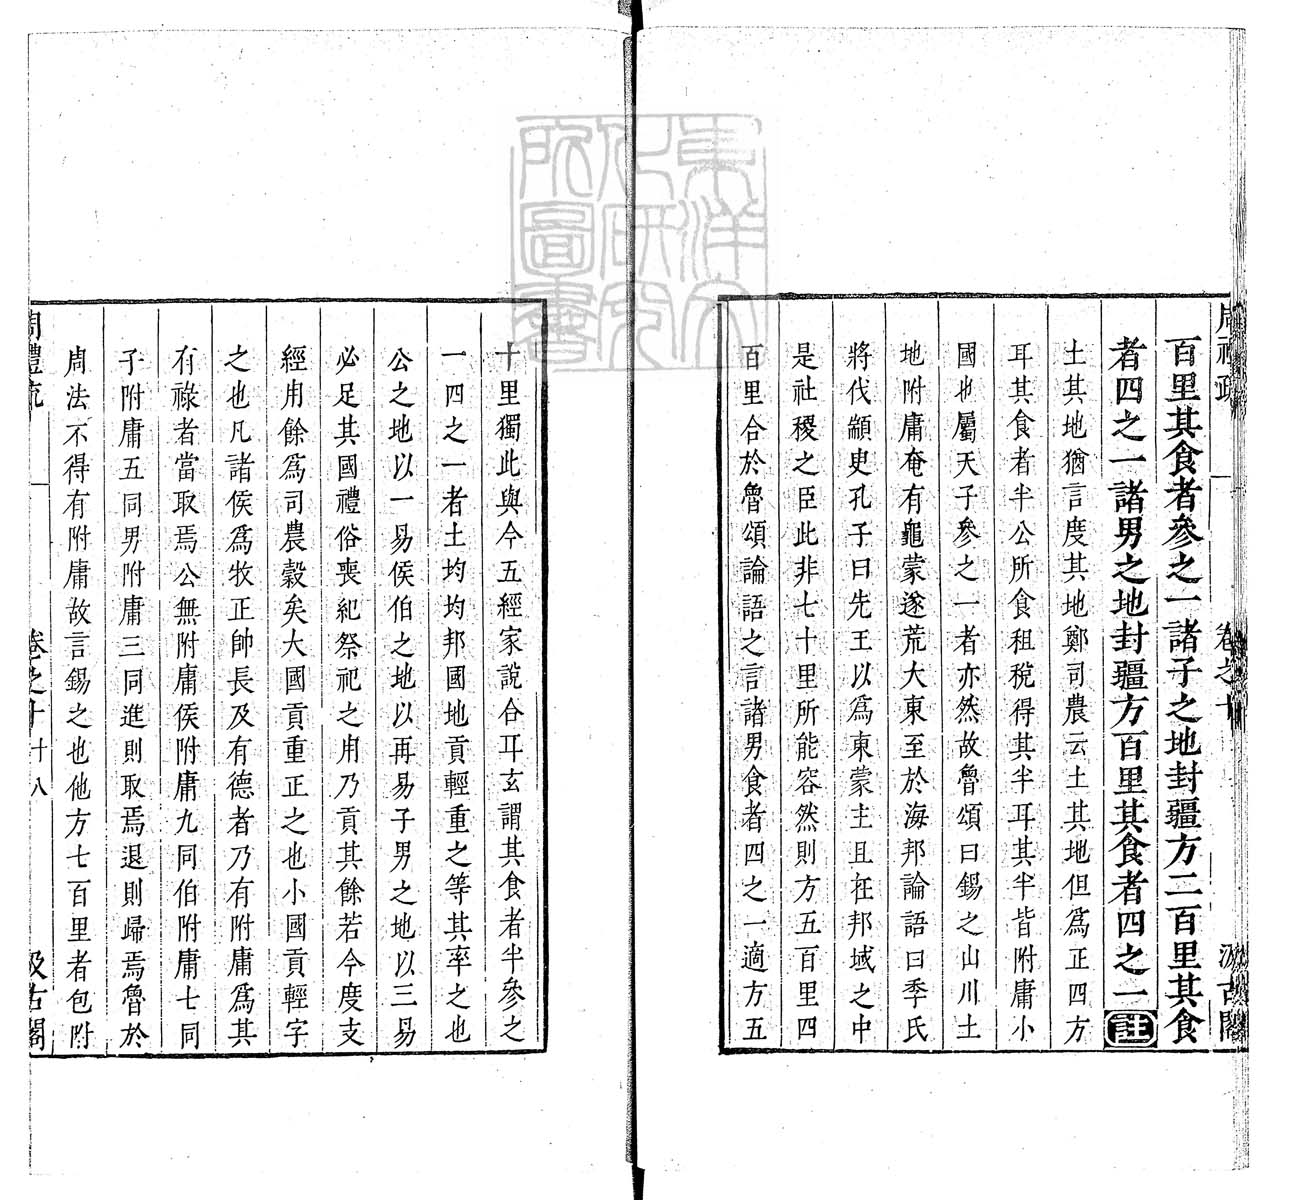 周禮疏
卷之十
汲古閣
百里其食者參之一諸子之地封疆方二百里其食
者四之一諸男之地封疆方百里其食者四之一註
土其地猶言度其地鄭司農云土其地但爲正四方
耳其食者半公所食租稅得其半耳其半皆附庸小
國也屬天子參之一者亦然故魯頌曰錫之山川土
地附庸奄有龜蒙遂荒大東至於海邦論語曰季氏
將伐顓臾孔子曰先王以爲東蒙主且在邦域之中
是社稷之臣此非七十里所能容然則方五百里四
百里合於魯頌論語之言諸男食者四之一適方五
十里獨此與今五經家說合耳玄謂其食者半參之
一四之一者土均均邦國地貢輕重之等其率之也
公之地以一易侯伯之地以再易子男之地以三易
必足其國禮俗喪紀祭祀之用乃貢其餘若今度支
經用餘爲司農穀矣大國貢重正之也小國貢輕字
之也凡諸侯爲牧正帥長及有德者乃有附庸爲其
有祿者當取焉公無附庸侯附庸九同伯附庸七同
子附庸五同男附庸三同進則取焉退則歸焉魯於
周法不得有附庸故言錫之也他方七百里者包附
周禮疏
卷之十
十八
汲古閣
東洋文
化研究
所圖書